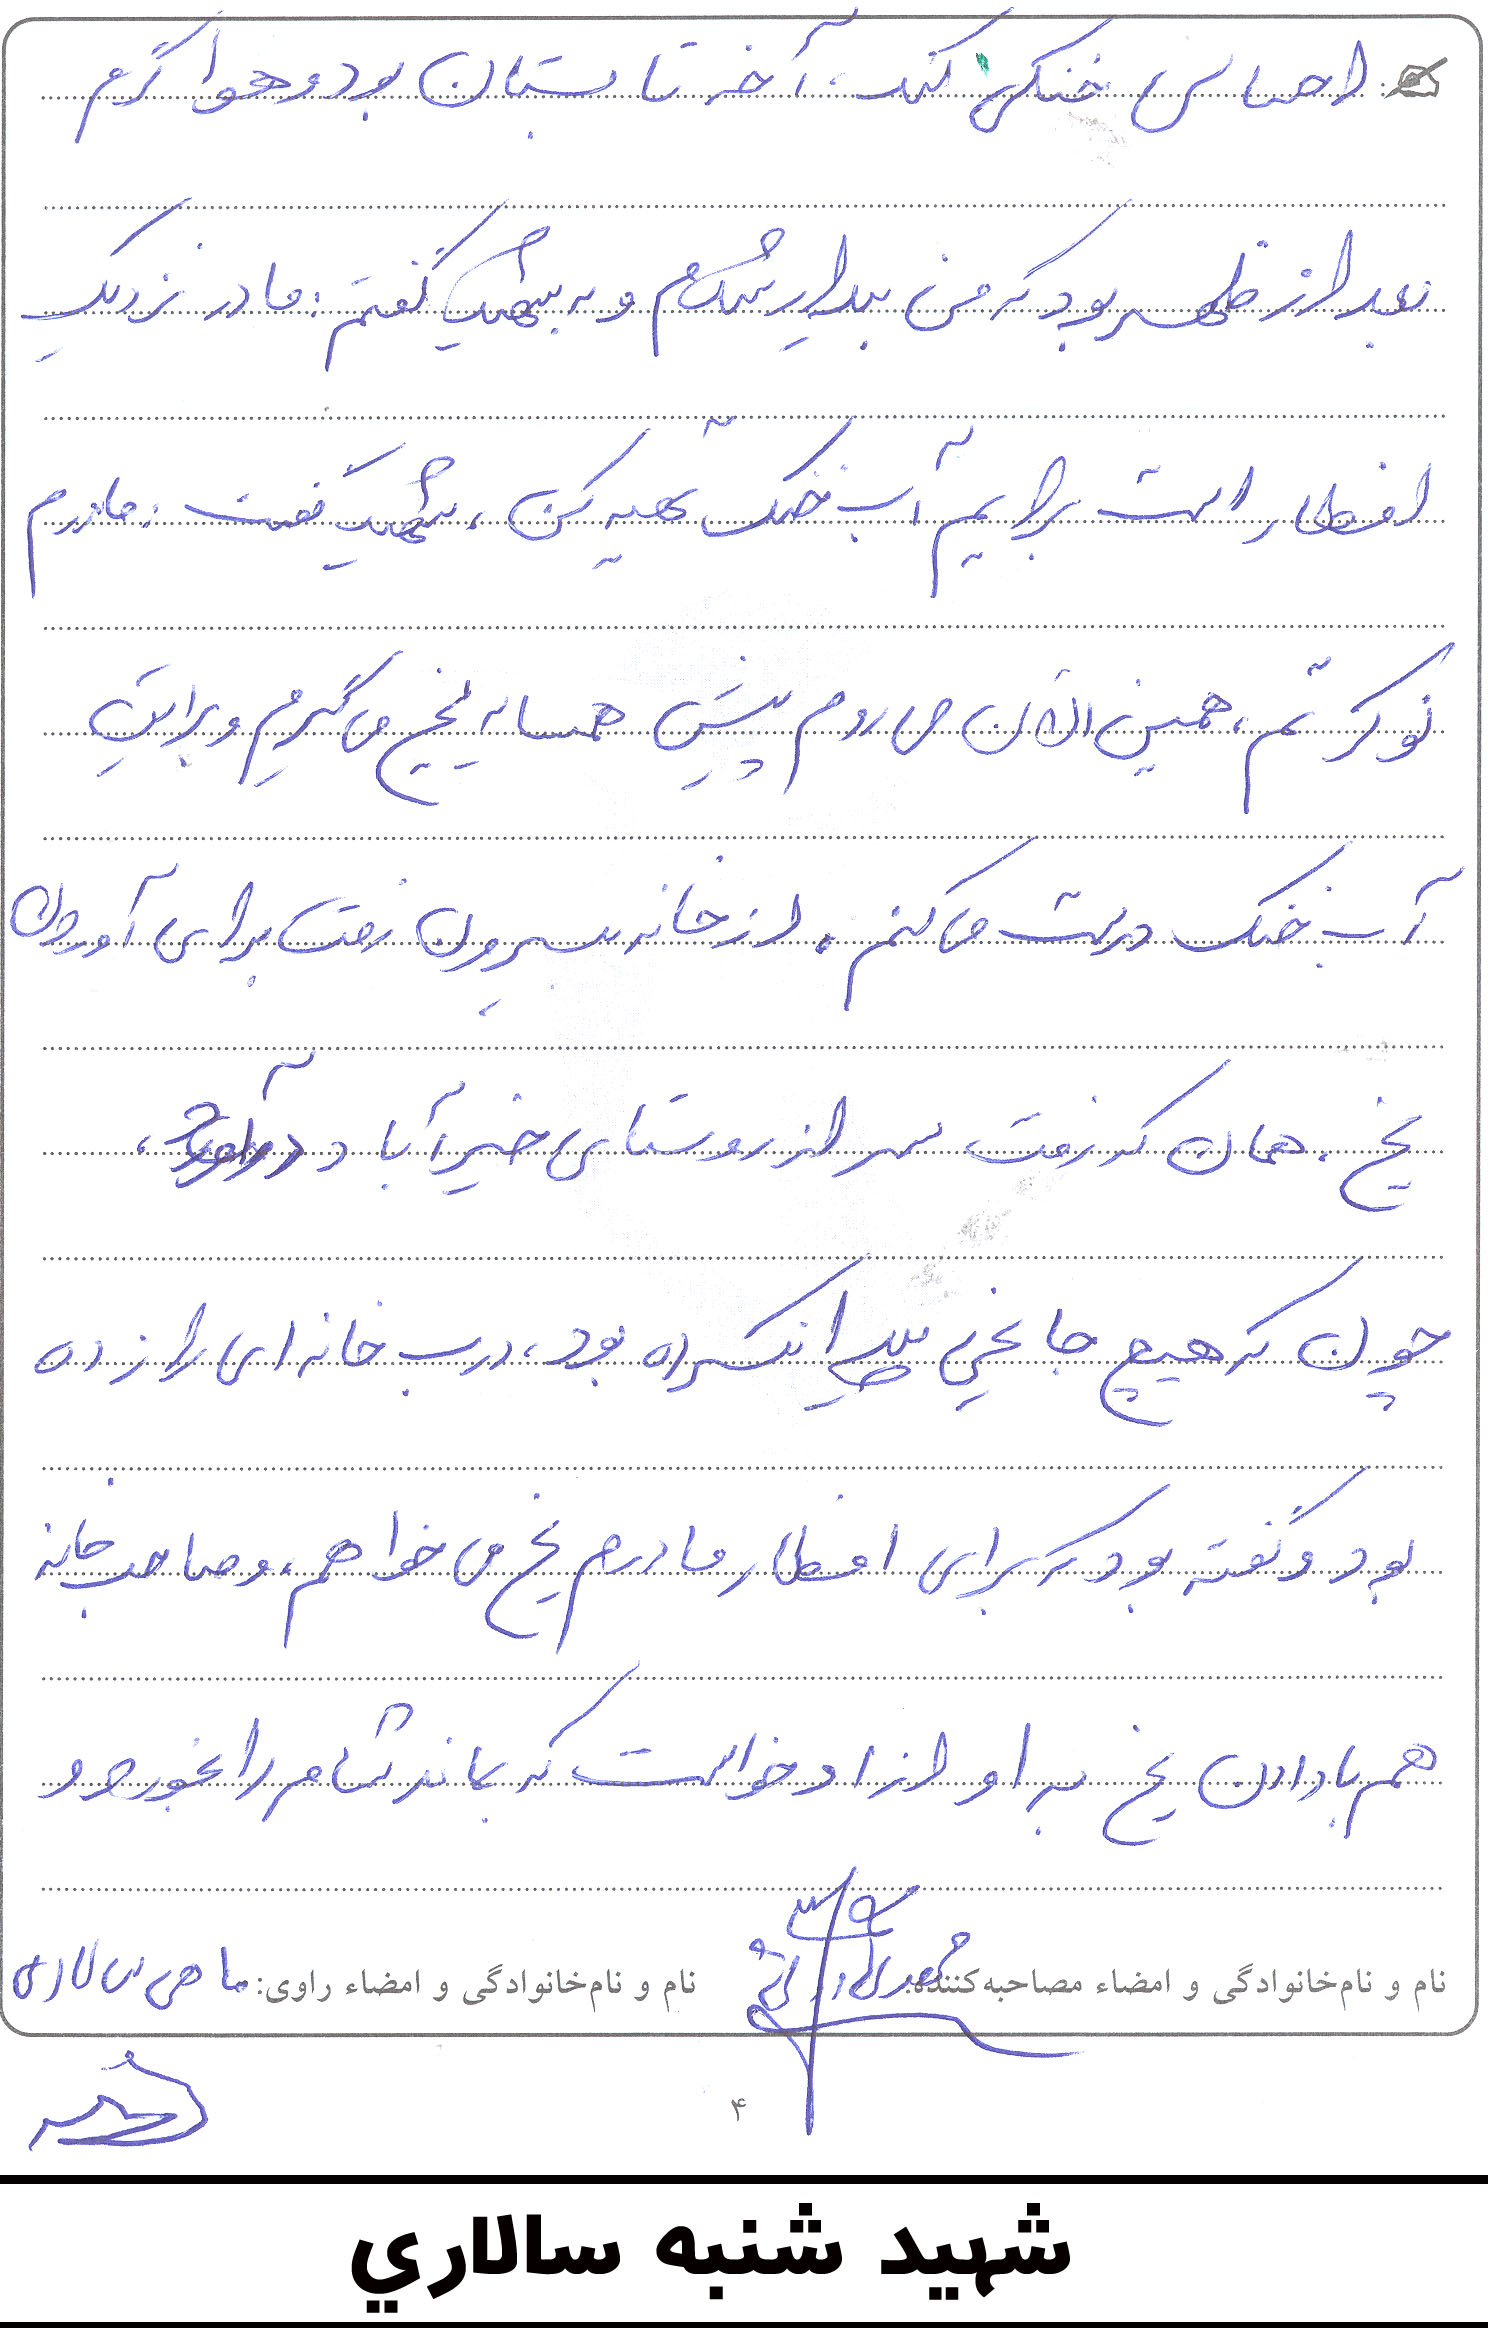 احساس خنکی کند، آخر تابستان بود و هوا گرم
بعد از ظهر بود که من بیدار شدم و به شهید گفتم: مادر نزدیک
افطار است برایم آب خنک تهیه کن، شهید گفت: مادرم
نوکرتم، همین الان می روم پیش همسایه یخ می گیرم و برایت
آب خنک درست می کنم. از خانه بیرون رفت برای آوردن
یخ، همان که رفت سر از روستای خیرآباد درآورد،
چون که هیچ جا یخی پیدا نکرده بود، درب خانه ای را زده
بود و گفته بود که برای افطار مادرم یخ می خواهم، و صاحب خانه
هم با دادن یخ به او از او خواست که بماند شام را بخورد و
نام و نام‌خانوادگی و امضاء مصاحبه‌کننده:
نام و نام‌خانوادگی و امضاء راوی: ماهی سالاری
۴
شهید شنبه سالاري